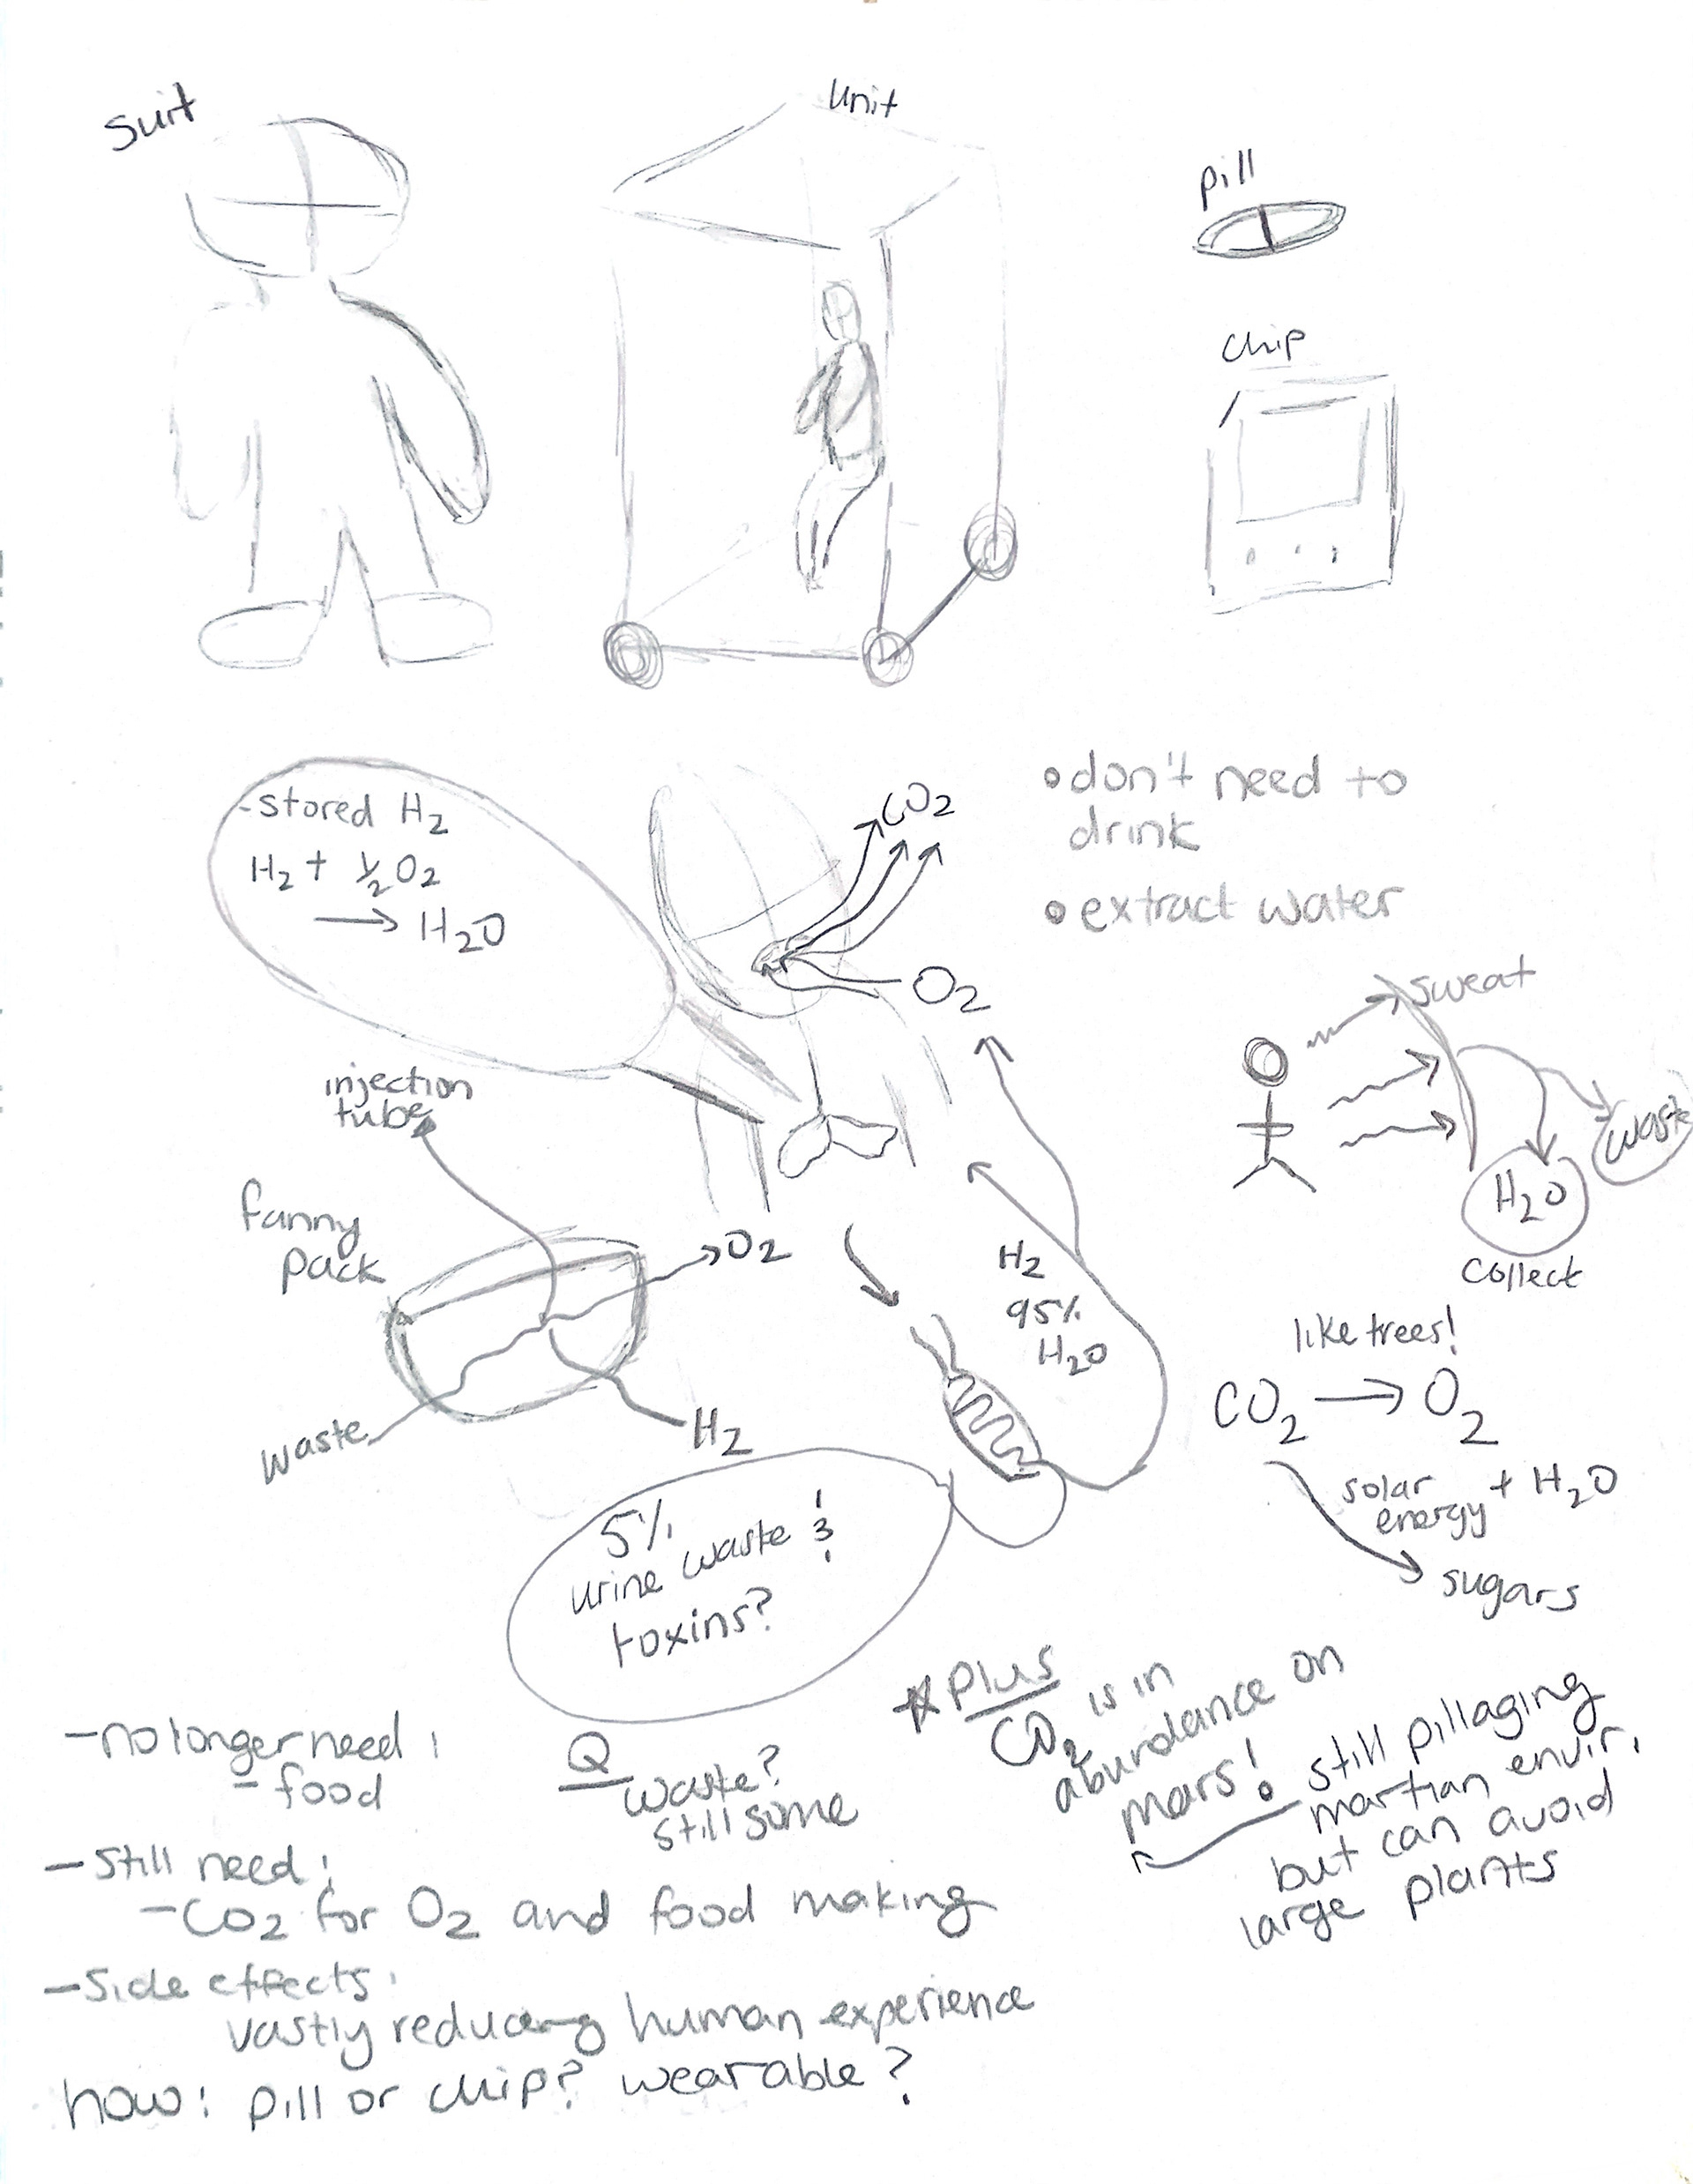 Suit
Unit
pill
chip
-stored H2
H2 + ½O2
→ H2O
CO2
O2
• don't need to
drink
• extract water
sweat
waste
H2O
collect
injection
tube
fanny
pack
O2
waste
H2
H2
95%
H2O
5%
urine waste &
toxins?
like trees!
CO2 → O2
solar
energy + H2O
sugars
* Plus
CO2 is in
abundance on
mars!
still pillaging
martian envir.
but can avoid
large plants
- no longer need:
- food
Q
waste?
still some
- Still need:
- CO2 for O2 and food making
- Side effects:
vastly reducing human experience
how: pill or chip? wearable?